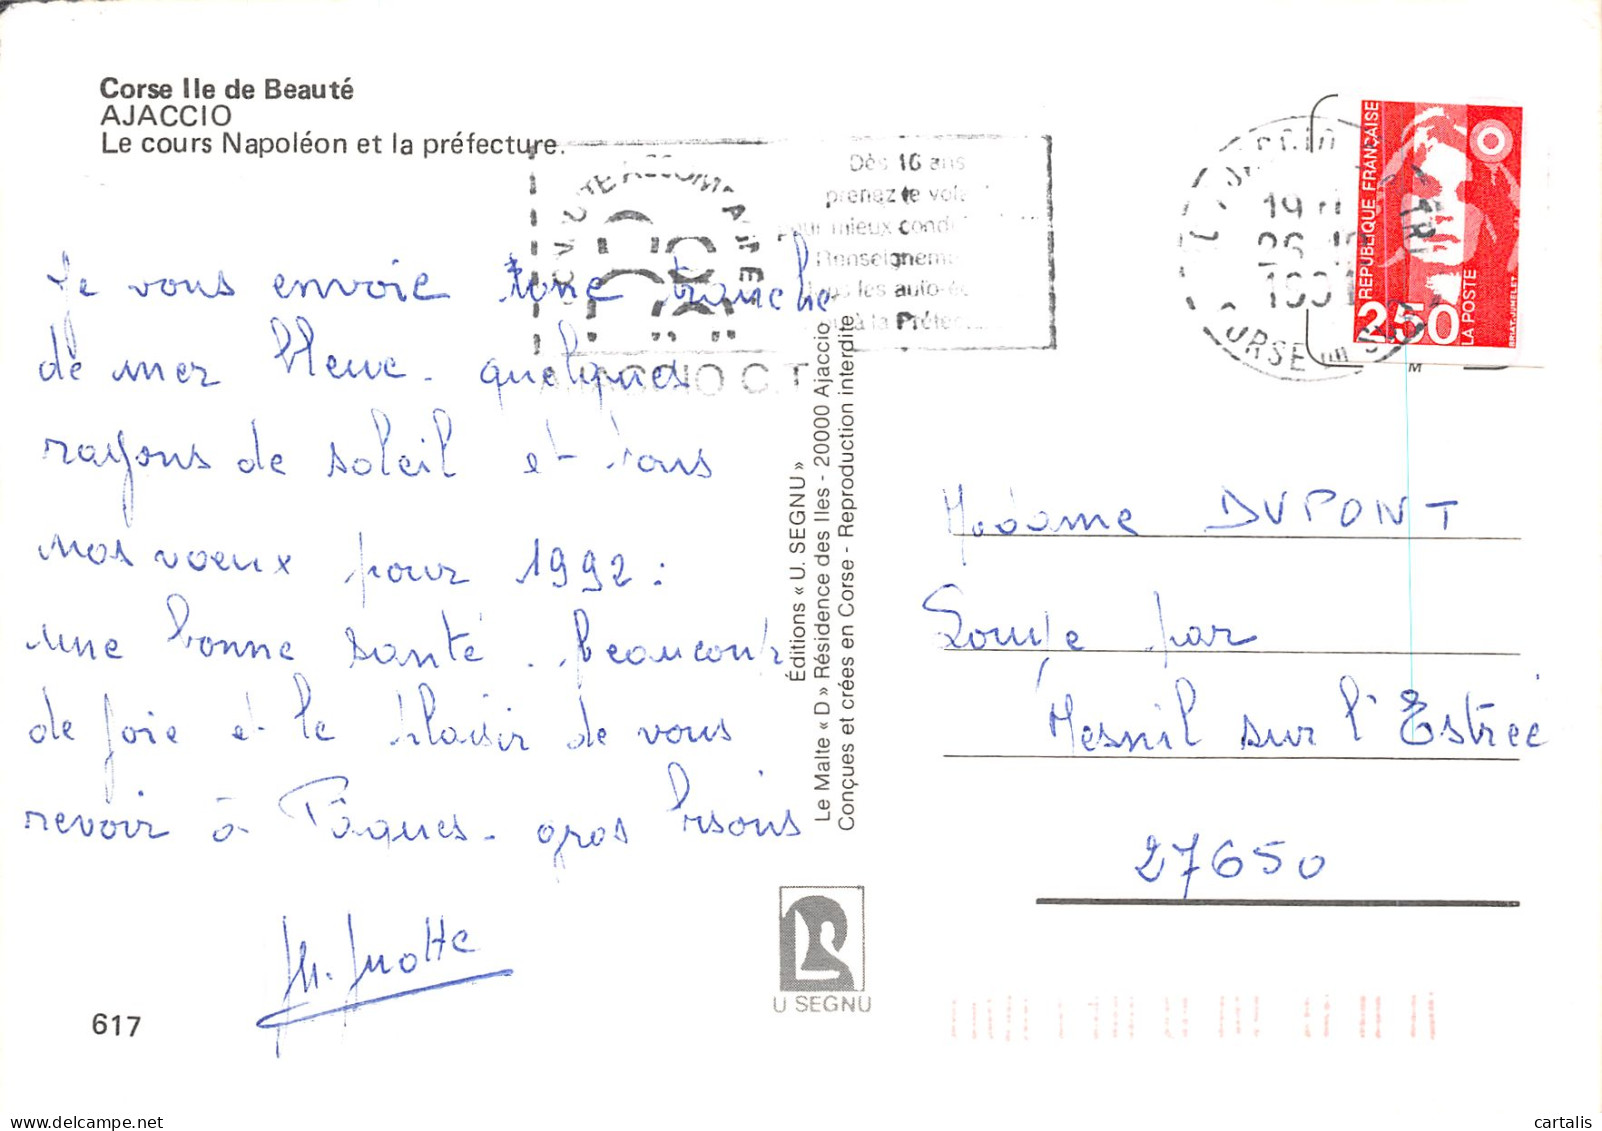 Corse Ile de Beauté
AJACCIO
Le cours Napoléon et la préfecture.
Dès 16 ans
prenez le
mieux
les
à la
AJACCIO C.T
19 H
1991
CORSE
REPUBLIQUE FRANÇAISE
2,50
LA POSTE
M
Je vous envoie une tranche
de mer bleue. quelques
rayons de soleil et tous
nos voeux pour 1992 :
une bonne santé. beaucoup
de joie et le plaisir de vous
revoir à Pâques. gros bisous
Éditions « U. SEGNU »
Le Malte « D » Résidence des Iles - 20000 Ajaccio
Conçues et crées en Corse - Reproduction interdite
Madame DUPONT
par
Mesnil sur l'Estrée
27650
U SEGNU
617
cartalis